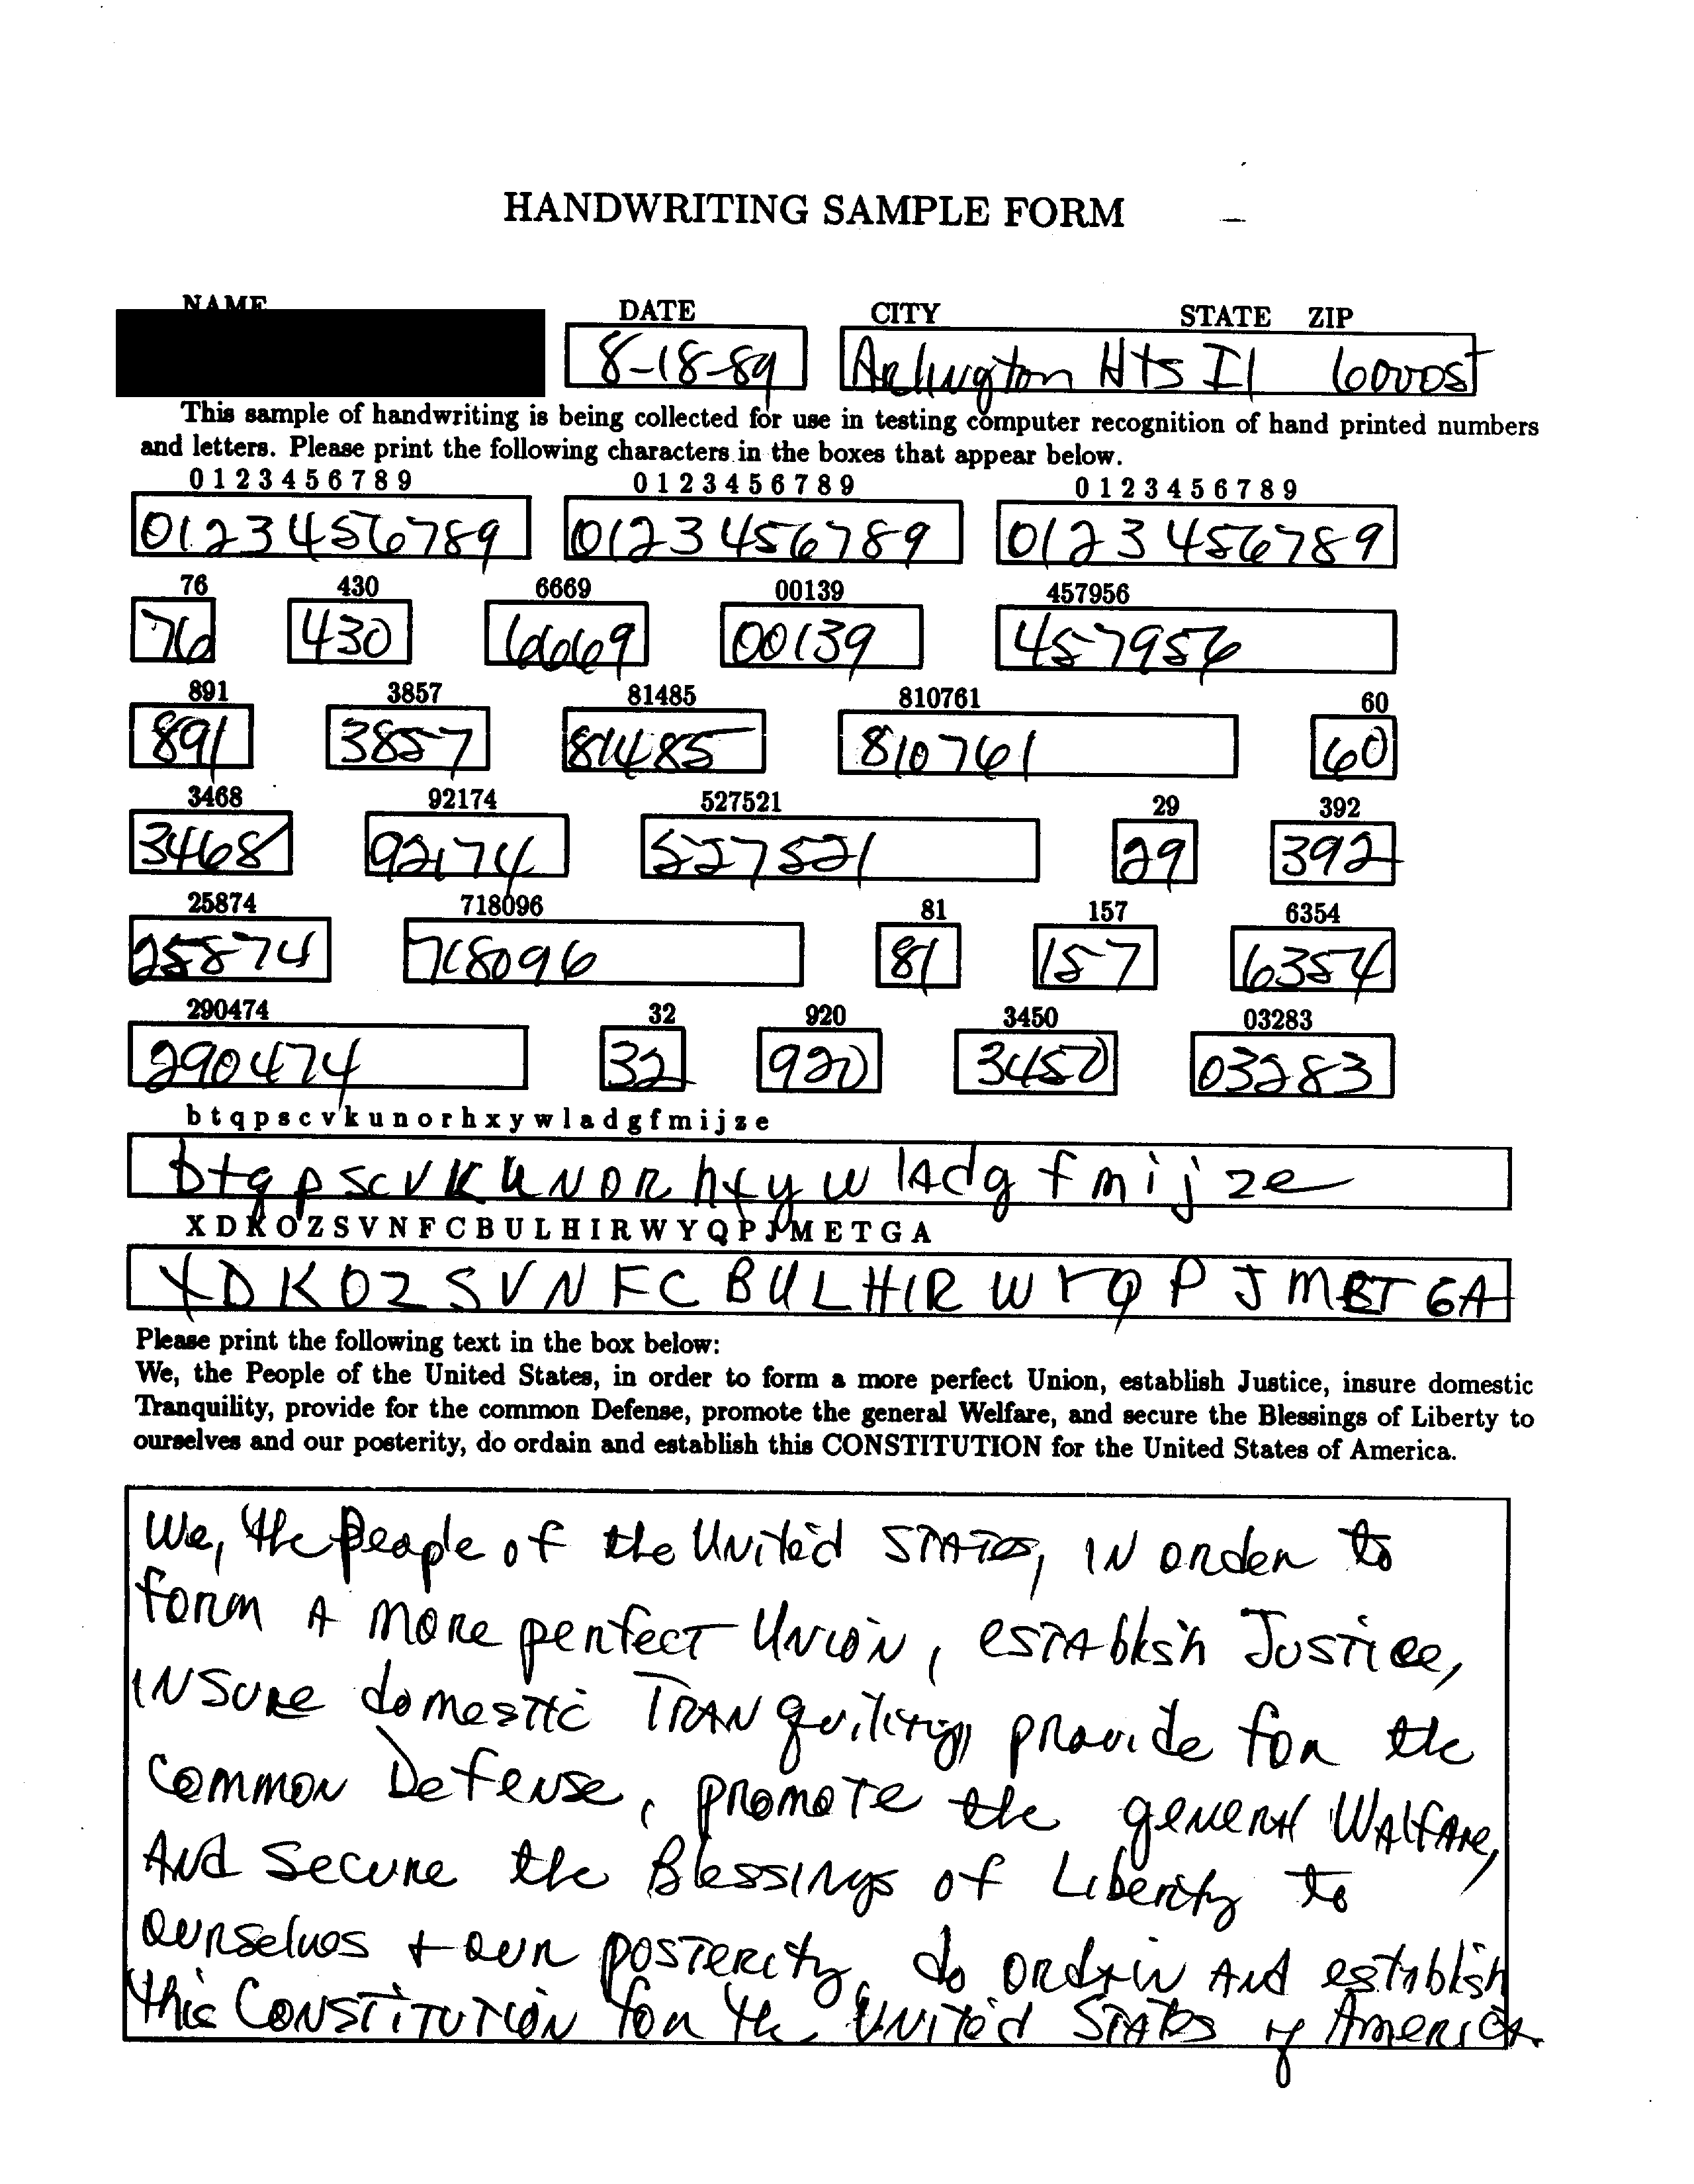 HANDWRITING SAMPLE FORM
NAME DATE CITY STATE ZIP
8-18-89 Arlington Hts Il 60005
This sample of handwriting is being collected for use in testing computer recognition of hand printed numbers
and letters. Please print the following characters in the boxes that appear below.
0 1 2 3 4 5 6 7 8 9 0 1 2 3 4 5 6 7 8 9 0 1 2 3 4 5 6 7 8 9
0123456789 0123456789 0123456789
76 430 6669 00139 457956
76 430 6669 00139 457956
891 3857 81485 810761 60
891 3857 81485 810761 60
3468 92174 527521 29 392
3468 92174 527521 29 392
25874 718096 81 157 6354
25874 718096 81 157 6354
290474 32 920 3450 03283
290474 32 920 3450 03283
b t q p s c v k u n o r h x y w l a d g f m i j z e
b t q p s c v k u N O R h x y w l A d g f m i j z e
X D K O Z S V N F C B U L H I R W Y Q P J M E T G A
X D K O Z S V N F C B U L H I R W Y Q P J M E T G A
Please print the following text in the box below:
We, the People of the United States, in order to form a more perfect Union, establish Justice, insure domestic
Tranquility, provide for the common Defense, promote the general Welfare, and secure the Blessings of Liberty to
ourselves and our posterity, do ordain and establish this CONSTITUTION for the United States of America.
We, the People of the United STATES, IN order to
form A MORE perfecT Union, esTAblish JusTice,
INSURE domesTic TRANquility, provide for the
Common Defense, promoTe the generAl WAlfare,
And Secure the Blessings of Liberty to
ourselves + our posTerity, do ordain And establish
this ConsTiTuTion for the United STATes of America.